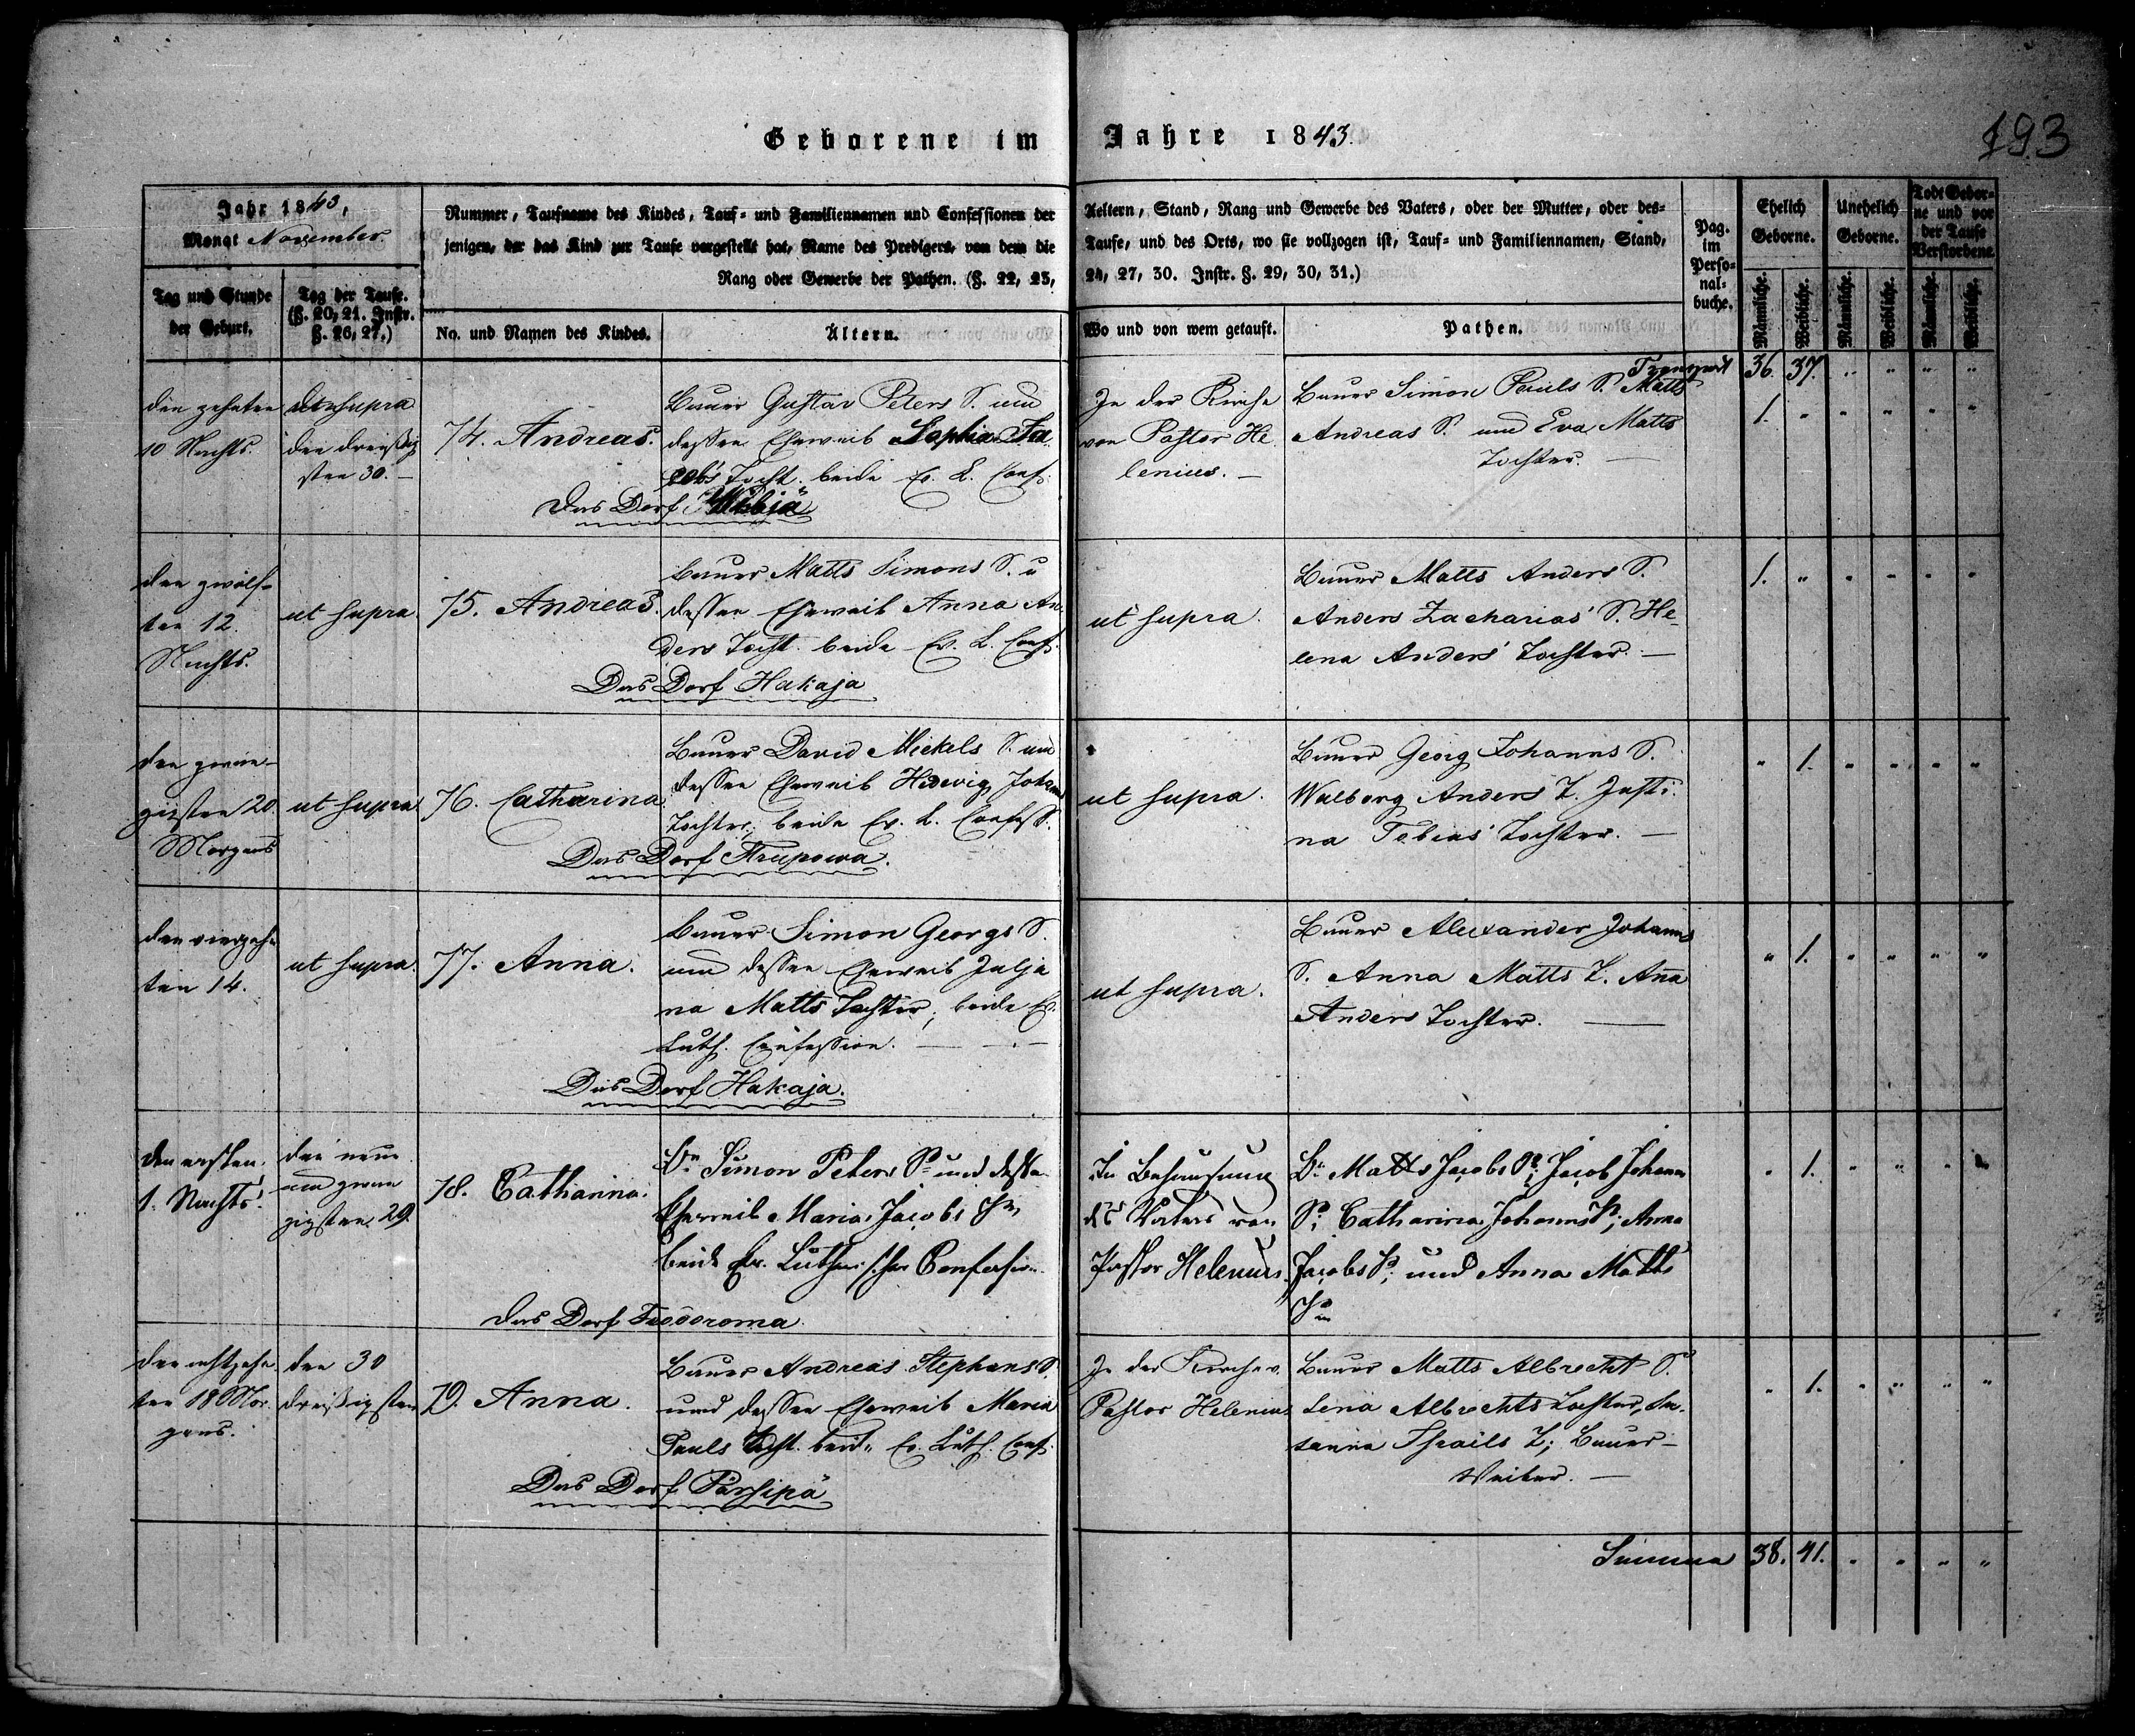 Geborene im Jahre 1843.
193
Jahr 1843,
Monat November.
Tag und Stunde
der Geburt.
Tag der Taufe.
(§. 20, 21. Instr.
§. 26, 27.)
Nummer, Taufname des Kindes, Tauf- und Familiennamen und Confessionen der
jenigen, der das Kind zur Taufe vorgestellt hat, Name des Predigers, von dem die
Rang oder Gewerbe der Pathen. (§. 22, 23,
No. und Namen des Kindes.
Ältern.
Aeltern, Stand, Rang und Gewerbe des Vaters, oder der Mutter, oder des-
Taufe, und des Orts, wo sie vollzogen ist, Tauf- und Familiennamen, Stand,
24, 27, 30. Instr. §. 29, 30, 31.)
Wo und von wem getauft.
Pathen.
Pag.
im
Perso-
nal-
buche.
Ehelich
Geborne.
Unehelich
Geborne.
Todt Gebor-
ne und vor
der Taufe
Verstorbene.
Männliche.
Weibliche.
Männliche.
Weibliche.
Männliche.
Weibliche.
Transport 36. 37. " " " "
den zehnten
10 Nachts.
den dreißig
sten 30.
74. Andreas.
Bauer Gustav Peters S. und
dessen Eheweib Sophia Ja
cobs Tocht. beide Ev. L. Conf.
Das Dorf
In der Kirche
von Pastor He
lenius.
Bauer Simon Pauls S. Matts
Andreas S. und Eva Matts
Tochter.
1. " " " " "
den zwölf-
ten 12.
Nachts.
ut supra.
75. Andreas.
Bauer Matts Simons S. u
dessen Eheweib Anna An
ders Tocht. beide Ev. L. Conf.
Das Dorf Hakaja
ut supra.
Bauer Matts Anders S.
Anders Zacharias' S. He-
lena Anders' Tochter.
1. " " " " "
den zwan-
zigsten 20.
Morgens
ut supra
76. Catharina
Bauer David Mickels S. und
dessen Eheweib Hedevig Johans
Tochter, beide Ev. L. Confess.
Das Dorf Krupowa.
ut supra.
Bauer Georg Johanns S.
Walborg Anders T. Justi-
na Tobias' Tochter.
" 1. " " " "
den vierzehn
ten 14.
ut supra.
77. Anna.
Bauer Simon Georgs S.
und dessen Eheweib Julja
na Matts Tochter, beide Ev.
Luth. Confession.
Das Dorf Hakaja.
ut supra.
Bauer Alexander Johanns
S. Anna Matts T. Aña
Anders Tochter.
" 1. " " " "
den ersten
1. Nachts.
den neun
und zwan
zigsten 29.
78. Catharina.
Br. Simon Peters Sn und dessen
Eheweib Maria Jacobs Tr
beide Ev. Lutherischer Confession.
Das Dorf Feodoroma
In Behausung
des Vaters von
Pastor Helenius.
Br. Matts Jacobs Sn, Jacob Johann
Sn; Catharina Johanns Tr; Anna
Jacobs Tr; und Anna Matts
Tr
" 1. " " " "
den achtzehn
ten 18 Mor
gens.
den 30
dreißigsten
79. Anna.
Bauer Andreas Stephans S.
und dessen Eheweib Maria
Pauls Tocht. beide Ev. Luth. Conf.
Das Dorf Pärsipä
In der Kirche v.
Pastor Helenius
Bauer Matts Albrecht S.
Lena Albrechts Tochter, Su-
sanna Israils T; Bauer-
Weiber.
" 1. " " " "
Summa 38. 41. " " " "